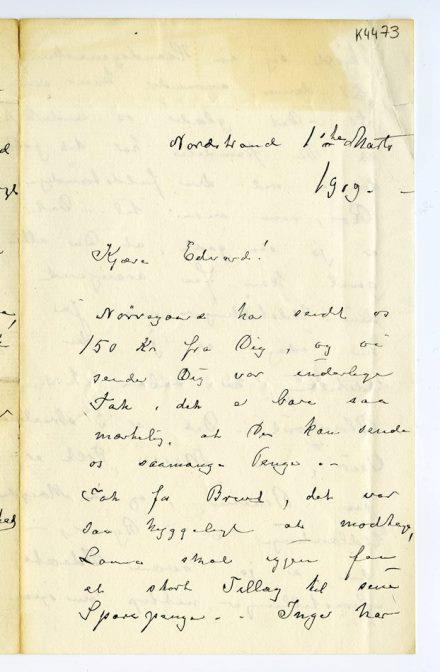 K4473
Nordstrand 1ste Marts
1909.
Kjære Edvard!
Nörregaard har sendt os
150 Kr fra Dig, og vi
sender Dig vor inderlige
Tak, det er bare saa
mærkelig, at Du kan sende
os saamange Penge. –
Tak for Brevet, det var
saa hyggeligt at modtage,
Laura skal igjen faa
et stort Tillæg til sine
Sparepenge. – Inger har